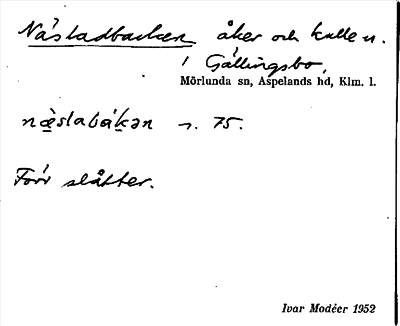 Nästadbacken åker och kulle n.
i Gällingsbo,
Mörlunda sn, Aspelands hd, Klm. l.
næ̀slabákən n. 75.
Förr slåtter.
Ivar Modéer 1952